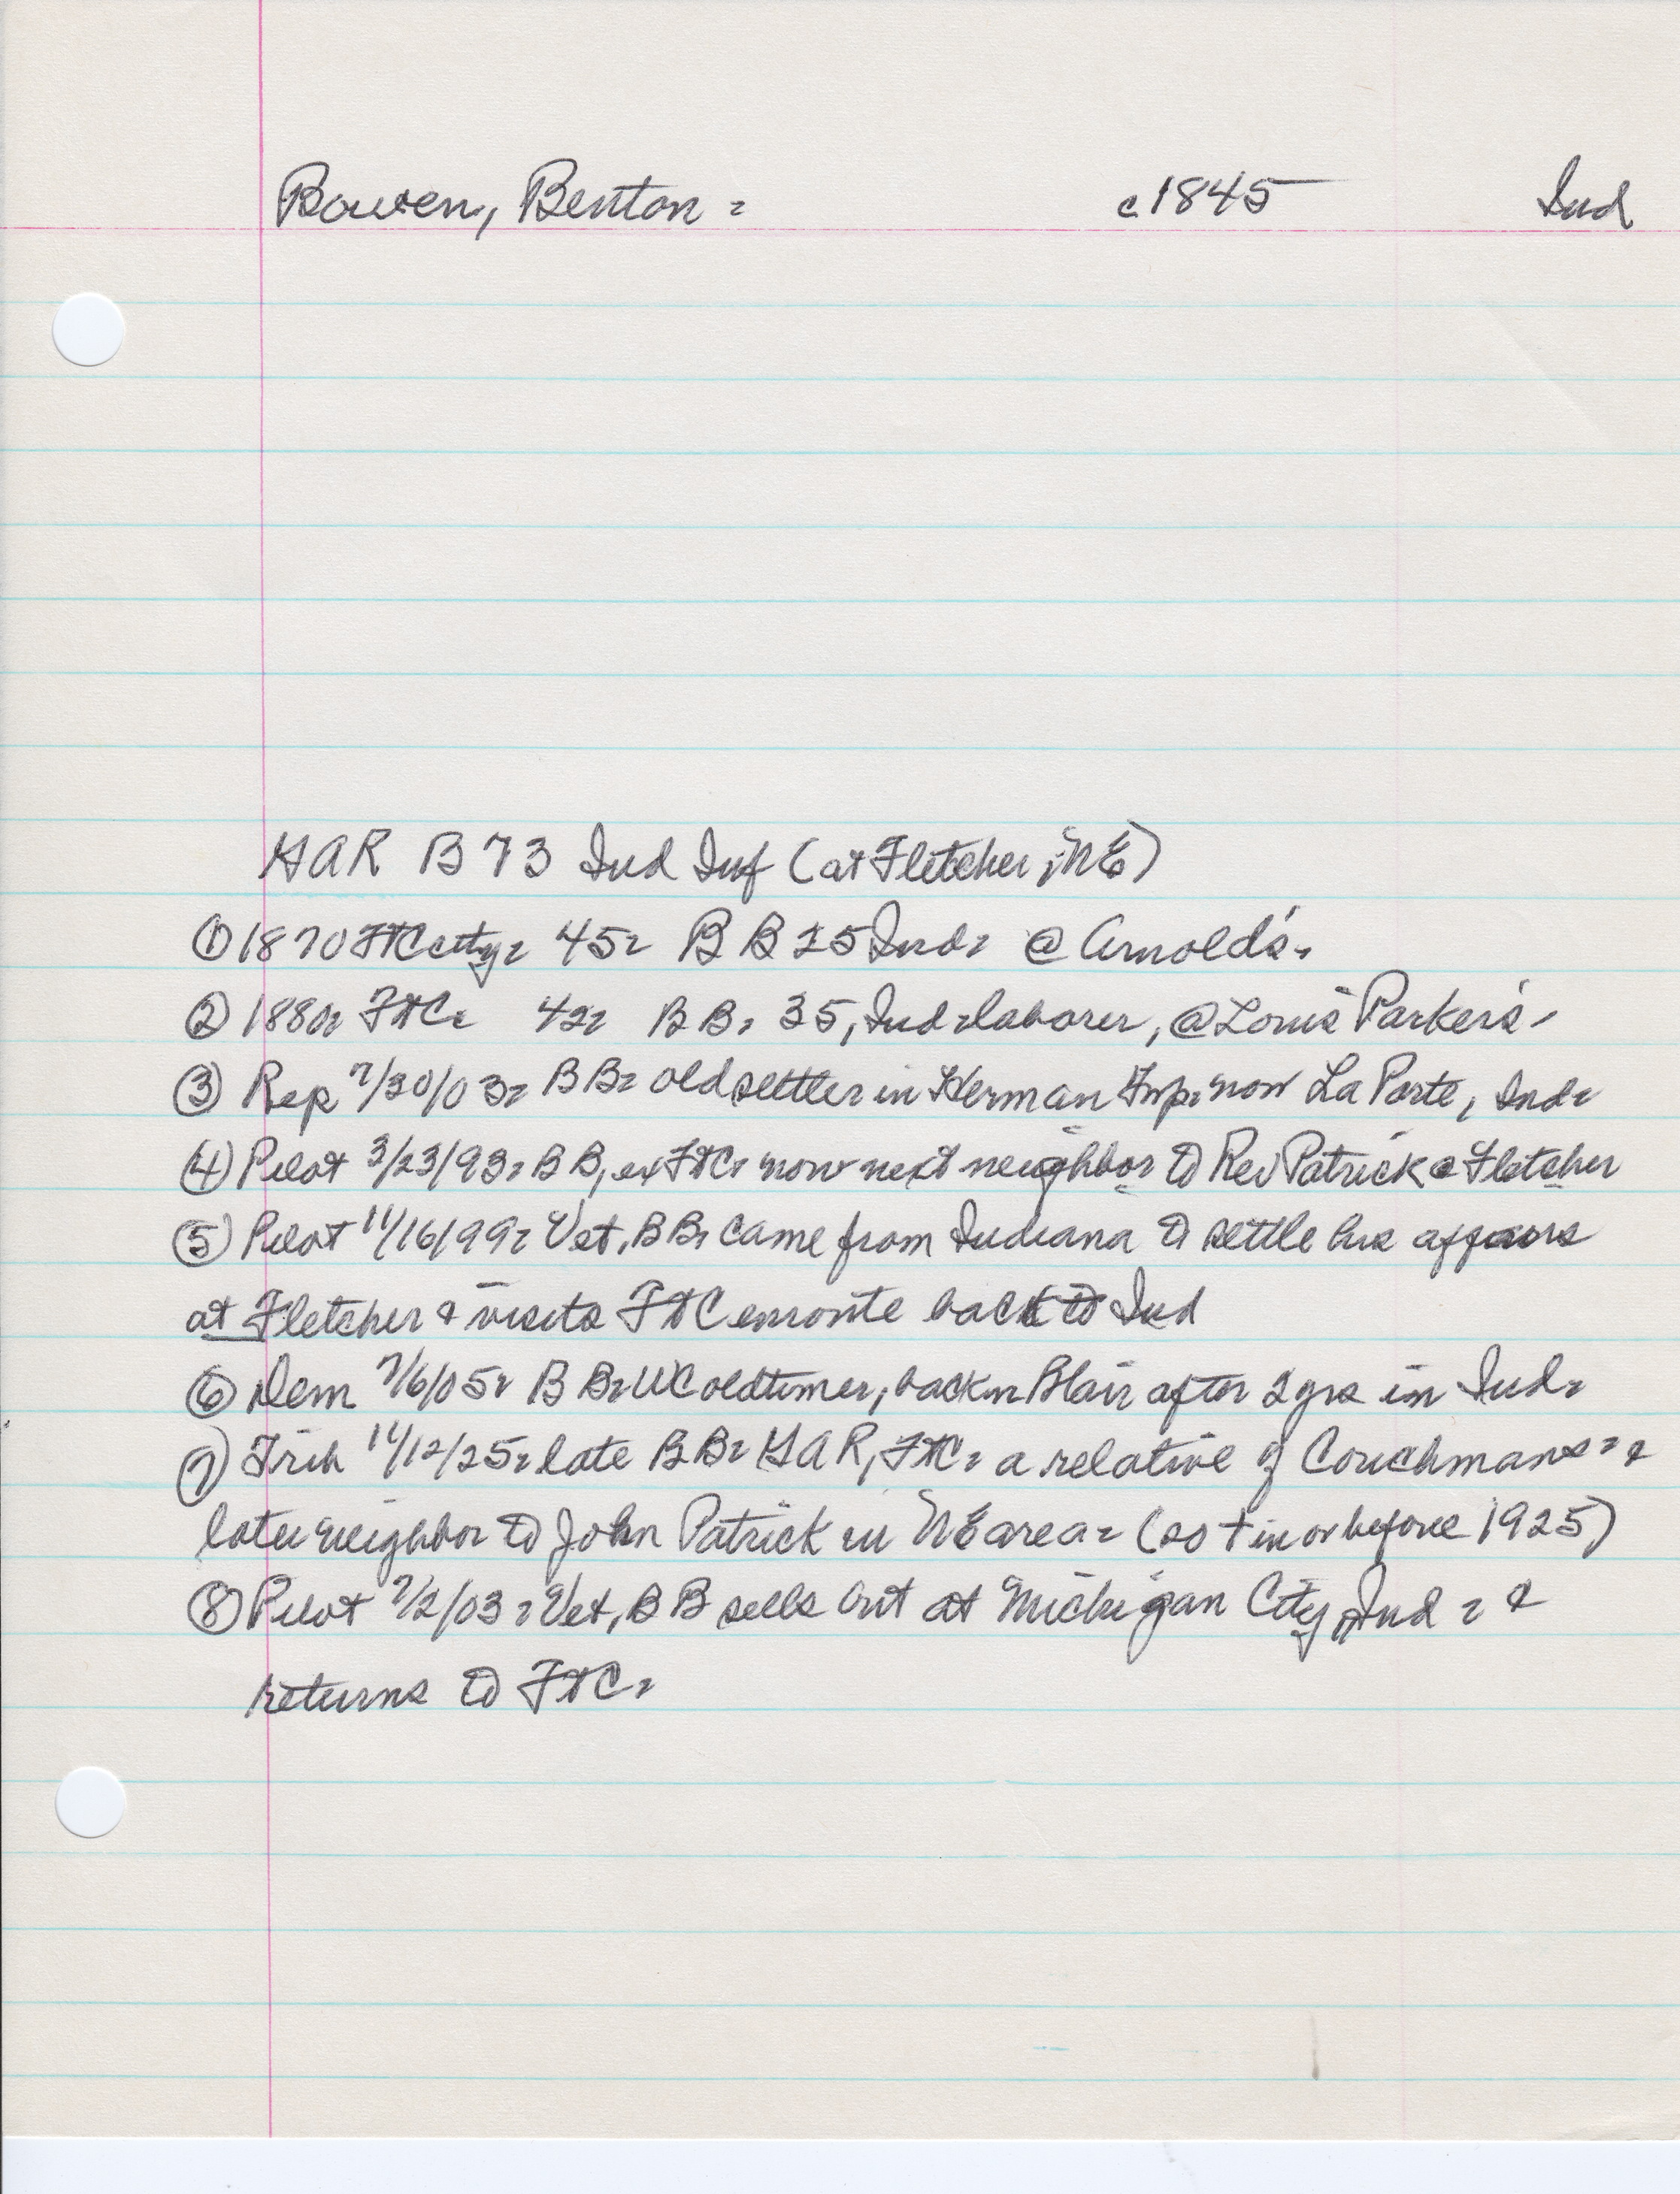 Bowen, Benton = c1845 Ind
GAR B 73 Ind Inf (at Fletcher, NE)
① 1870 FtC city= 45= B B 25 Ind= @ Arnold's.
② 1880= FtC= 42= B B= 35, Ind=laborer, @ Louis Parker's.
③ Rep 7/30/03= B B= old settler in Herman Twp= now La Porte, Ind=
④ Pilot 3/23/93= B B, ex FtC= now next neighbor to Rev Patrick @ Fletcher
⑤ Pilot 11/16/99= Vet, B B= came from Indiana to settle his affairs
at Fletcher & visits FtC enroute back to Ind
⑥ Dem 7/6/05= B B= WC oldtimer, back in Blair after 2 yrs in Ind=
⑦ Trib 11/12/25= late B B= GAR, FtC= a relative of Couchmans= &
later neighbor to John Patrick in NE area= (so + in or before 1925)
⑧ Pilot 7/2/03= Vet, B B sells out at Michigan City, Ind = &
returns to FtC=